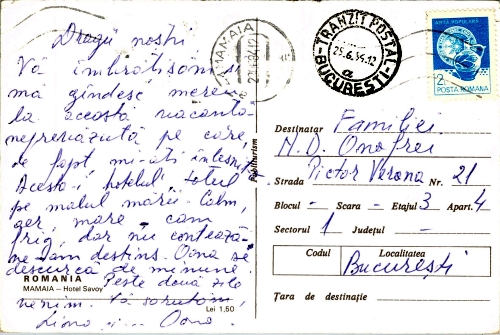 Dragii noștri
Vă îmbrățișăm și
mă gîndesc mereu
la aceasta vacanta
neprevăzută pe care,
de fapt mi-ați
Acesta-i hotelul. totul
pe malul mării. Calm,
aer, mare cam
frig, dar nu contează-
ne-am destins. Oana se
descurcă de minune.
Peste două zile
venim. Vă sărutăm,
Oana
ROMANIA
MAMAIA – Hotel Savoy
Lei 1,50
MAMAIA
TRANZIT POSTAL
25.6.84.12
a
BUCURESTI-1
ARTA POPULARA
2L
POSTA ROMANA
Destinatar Familiei
M. D. Onofrei
Strada Pictor Verona Nr. 21
Blocul – Scara – Etajul 3 Apart. 4
Sectorul 1 Județul –
Codul Localitatea
București
Țara de destinație